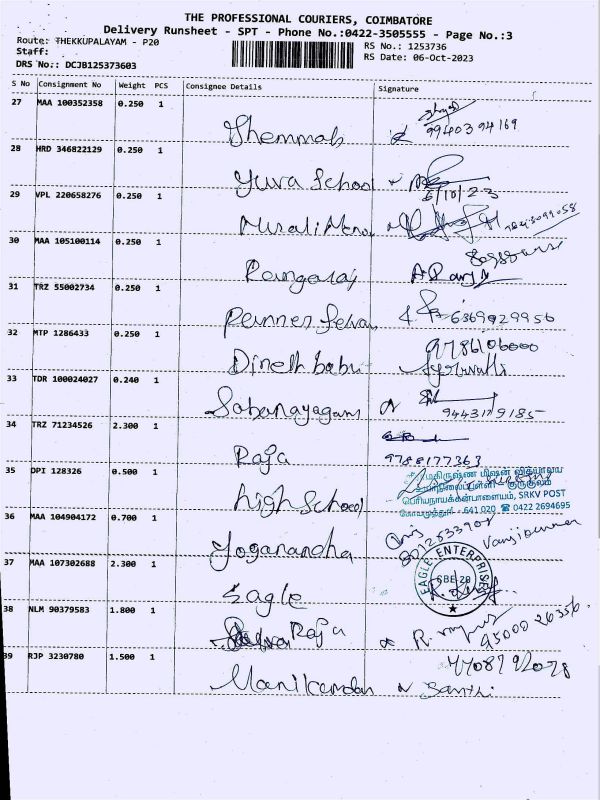 THE PROFESSIONAL COURIERS, COIMBATORE
Delivery Runsheet - SPT - Phone No.:0422-3505555 - Page No.:3
Route: THEKKUPALAYAM - P20
RS No.: 1253736
Staff:
RS Date: 06-Oct-2023
DRS No.: DCJB125373603
S No Consignment No Weight PCS Consignee Details Signature
27 MAA 100352358 0.250 1
Shemmab
99403 94169
28 HRD 346822129 0.250 1
Yuva School
6/10/23
29 VPL 220658276 0.250 1
Murali
30 MAA 105100114 0.250 1
Rangaraj
31 TRZ 55002734 0.250 1
Panner Selvam 6369929956
32 MTP 1286433 0.250 1
9786106000
Dinesh babu
33 TDR 100024027 0.240 1
Sabanayagam
9443179185
34 TRZ 71234526 2.300 1
Raja
9788177363
35 DPI 128326 0.500 1
மகிருஷ்ண மிஷன் வித்யாலய
உயர்நிலைப்பள்ளி - குருகுலம்
பெரியநாயக்கன்பாளையம், SRKV POST
கோயமுத்தூர் - 641 020 ☎ 0422 2694695
high School
36 MAA 104904172 0.700 1
8012633907
Yoganandha
37 MAA 107302688 2.300 1
EAGLE ENTERPRISES
SBE-20
Eagle
38 NLM 90379583 1.800 1
Raja
95000 26356.
39 RJP 3230780 1.500 1
Manikandan Santhi